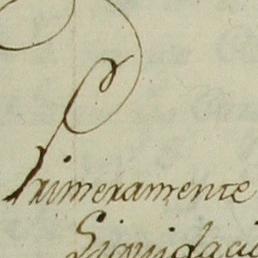 Primeramente
Liquidaci